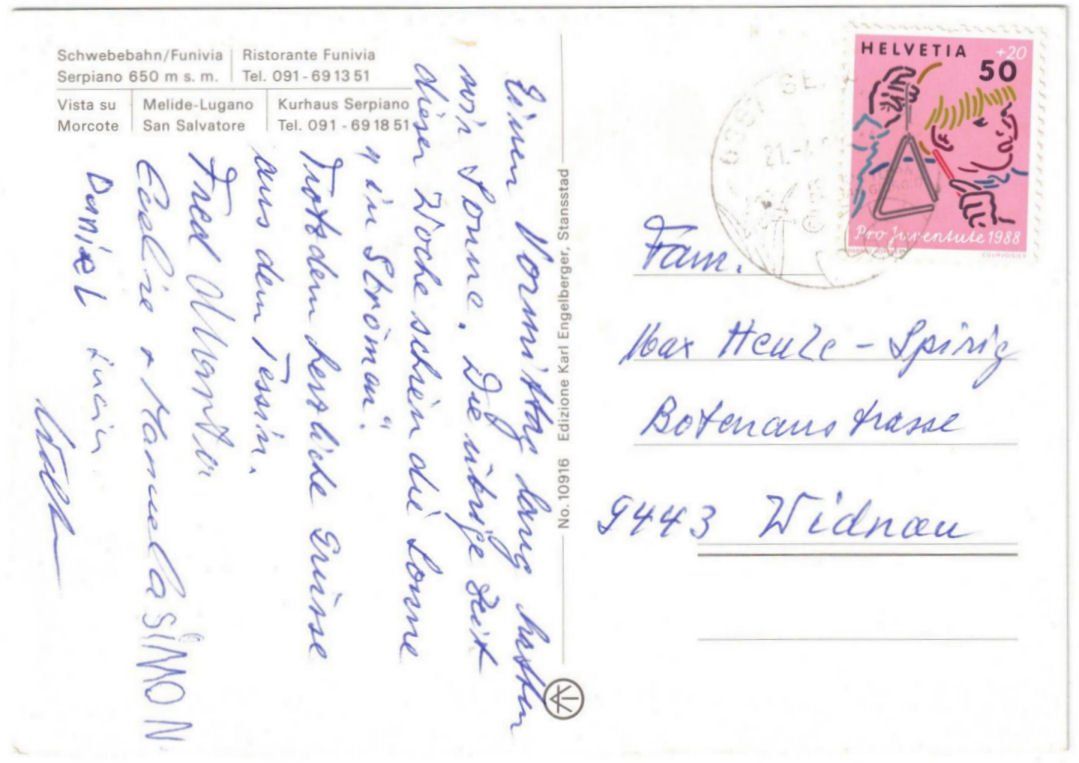 Schwebebahn/Funivia
Serpiano 650 m s. m.
Ristorante Funivia
Tel. 091 - 69 13 51
Vista su
Morcote
Melide-Lugano
San Salvatore
Kurhaus Serpiano
Tel. 091 - 69 18 51
Einen Vormittag lang hatten
wir Sonne. Die übrige Zeit
dieser Woche schien die Sonne
„in Strömen".
Trotzdem herzliche Grüsse
aus dem Tessin.
Fred
+ Manuela SIMON
Daniel
No. 10916 Edizione Karl Engelberger, Stansstad
HELVETIA
+20
50
Pro Juventute 1988
COURVOISIER
21.-4.
Fam.
Max Heule - Spirig
Botenaustrasse
9443 Widnau